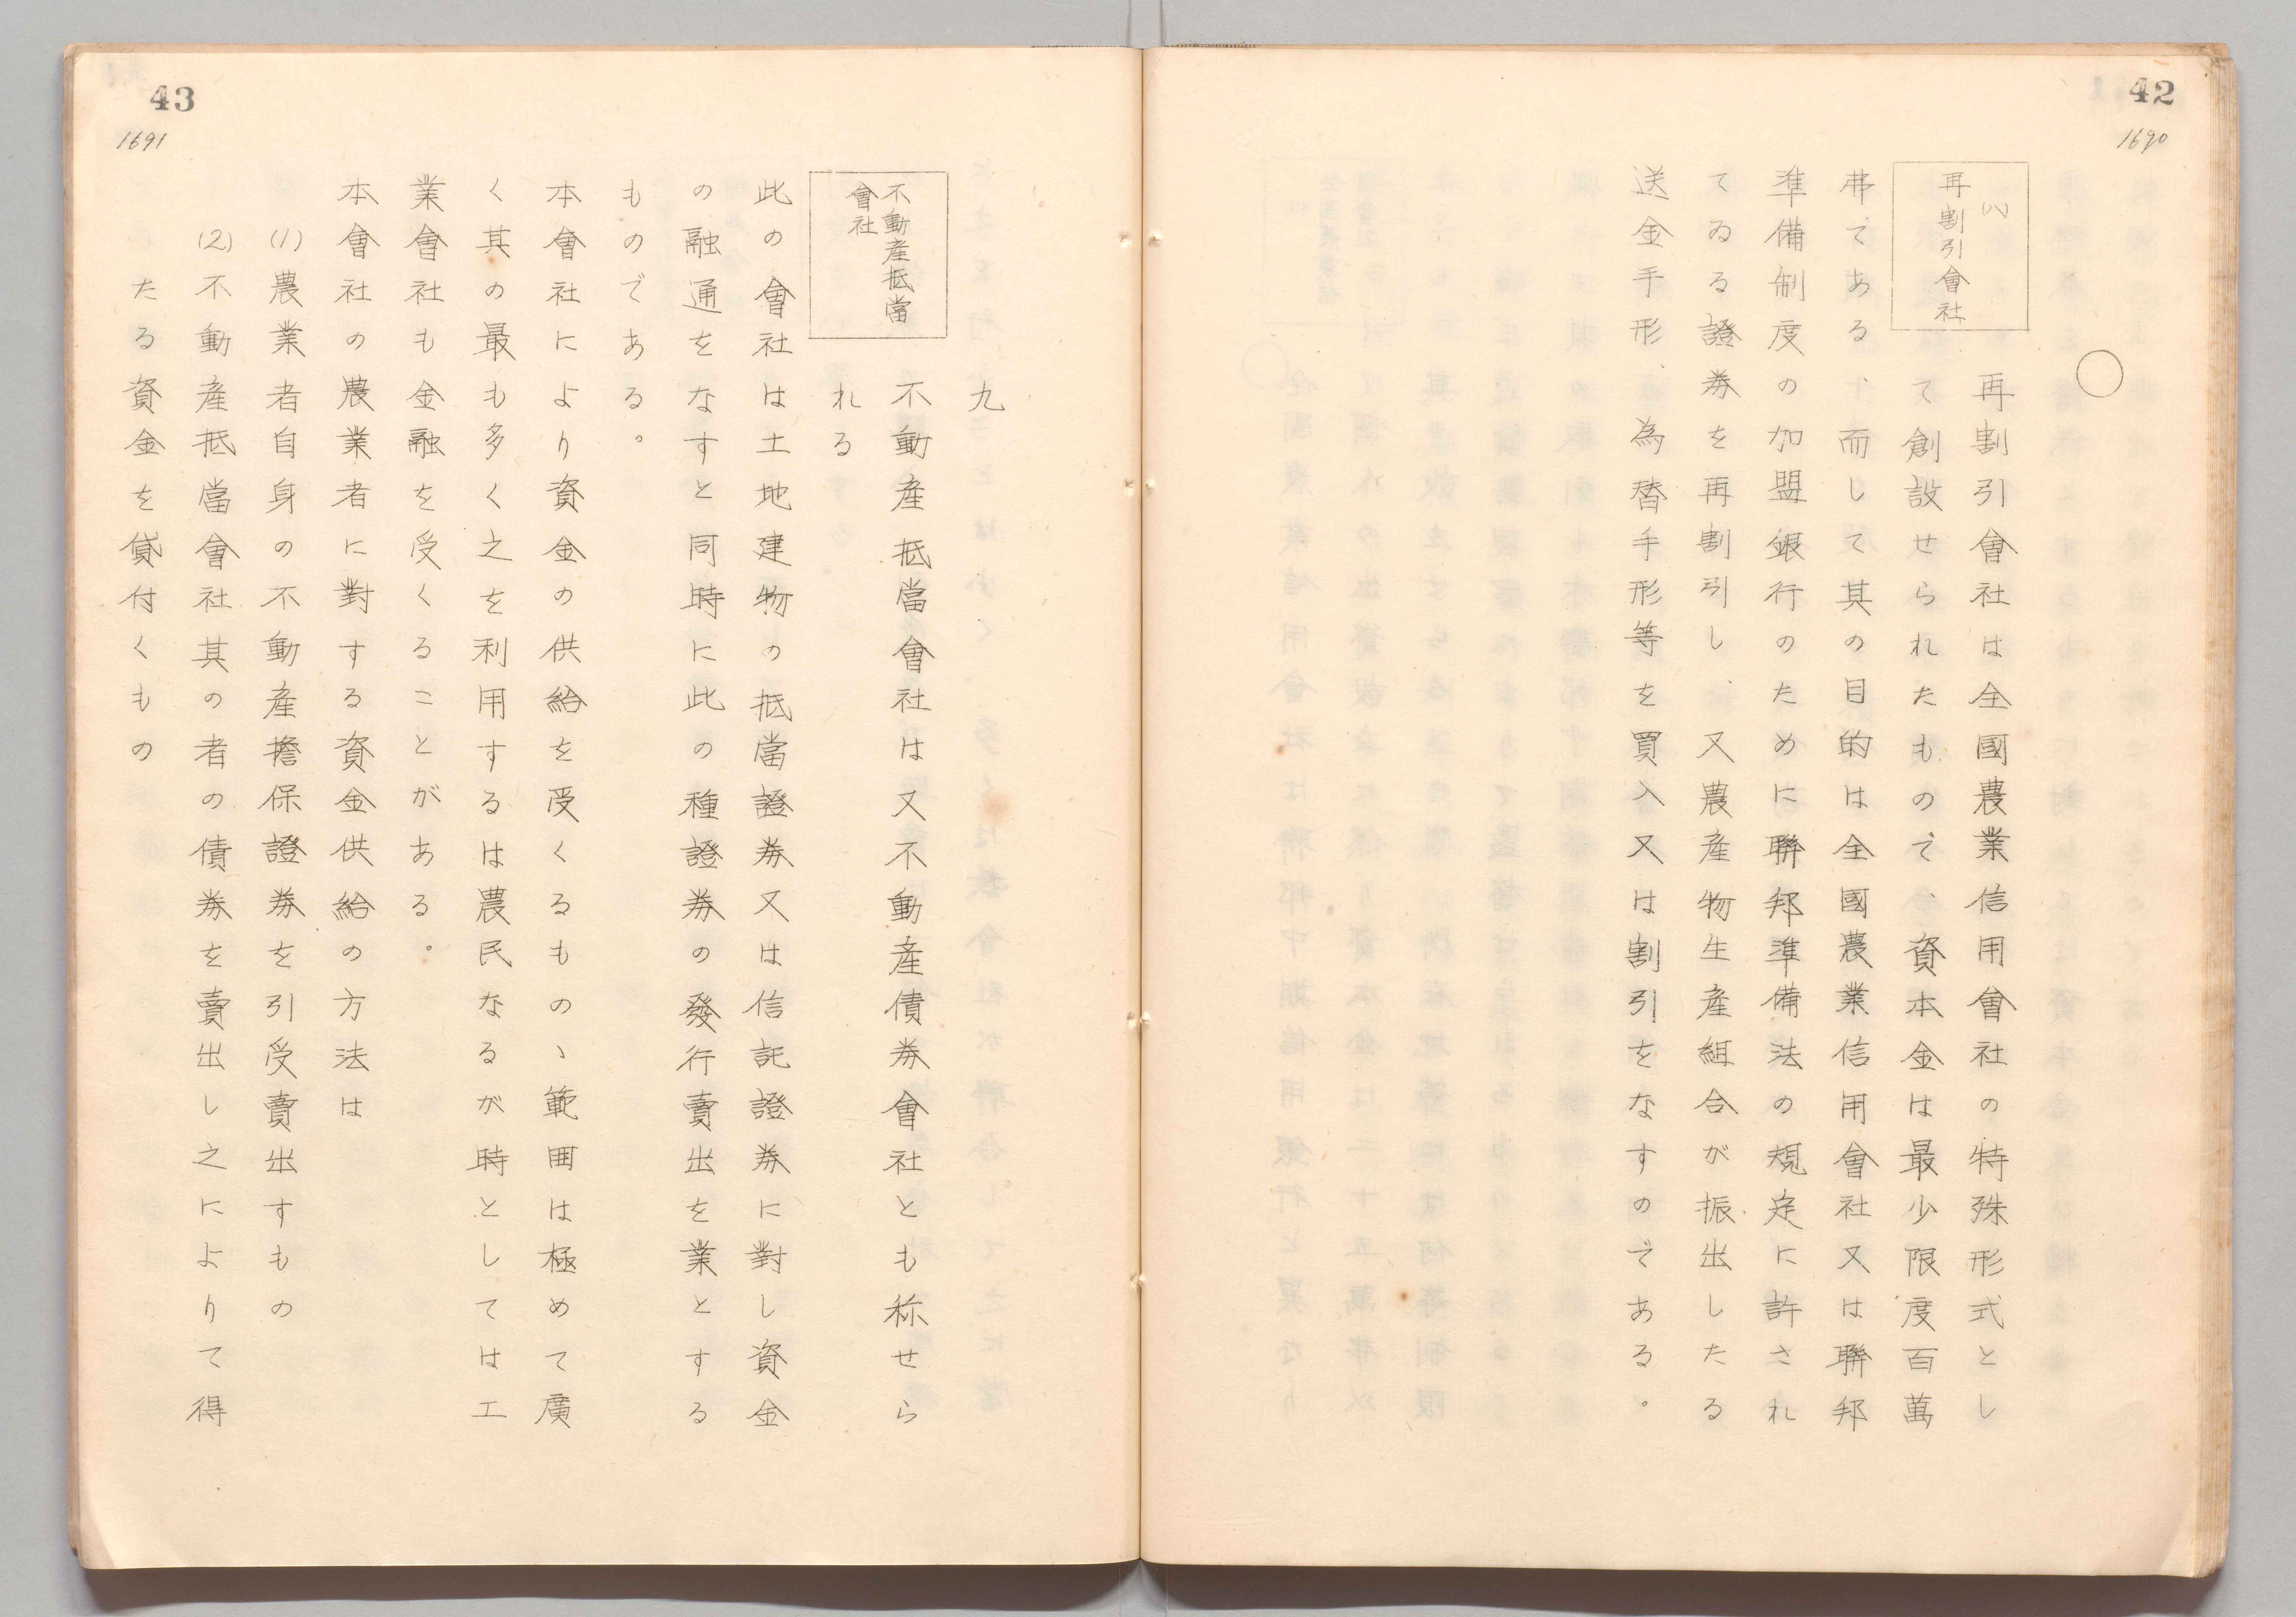 42
1690
(八)
再割引會社
再割引會社は全國農業信用會社の特殊形式とし
て創設せられたもので、資本金は最少限度百萬
弗である、而して其の目的は全國農業信用會社又は聯邦
準備制度の加盟銀行のために聯邦準備法の規定に許され
てゐる證券を再割引し、又農産物生産組合が振出したる
送金手形、為替手形等を買入又は割引をなすのである。
43
1691
九
不動産抵當
會社
不動産抵當會社は又不動産債券會社とも称せら
れる
此の會社は土地建物の抵當證券又は信託證券に對し資金
の融通をなすと同時に此の種證券の發行賣出を業とする
ものである。
本會社により資金の供給を受くるもの、範囲は極めて廣
く其の最も多く之を利用するは農民なるが時としては工
業會社も金融を受くることがある。
本會社の農業者に對する資金供給の方法は
(1)農業者自身の不動産擔保證券を引受賣出すもの
(2)不動産抵當會社其の者の債券を賣出し之によりて得
たる資金を貸付くもの